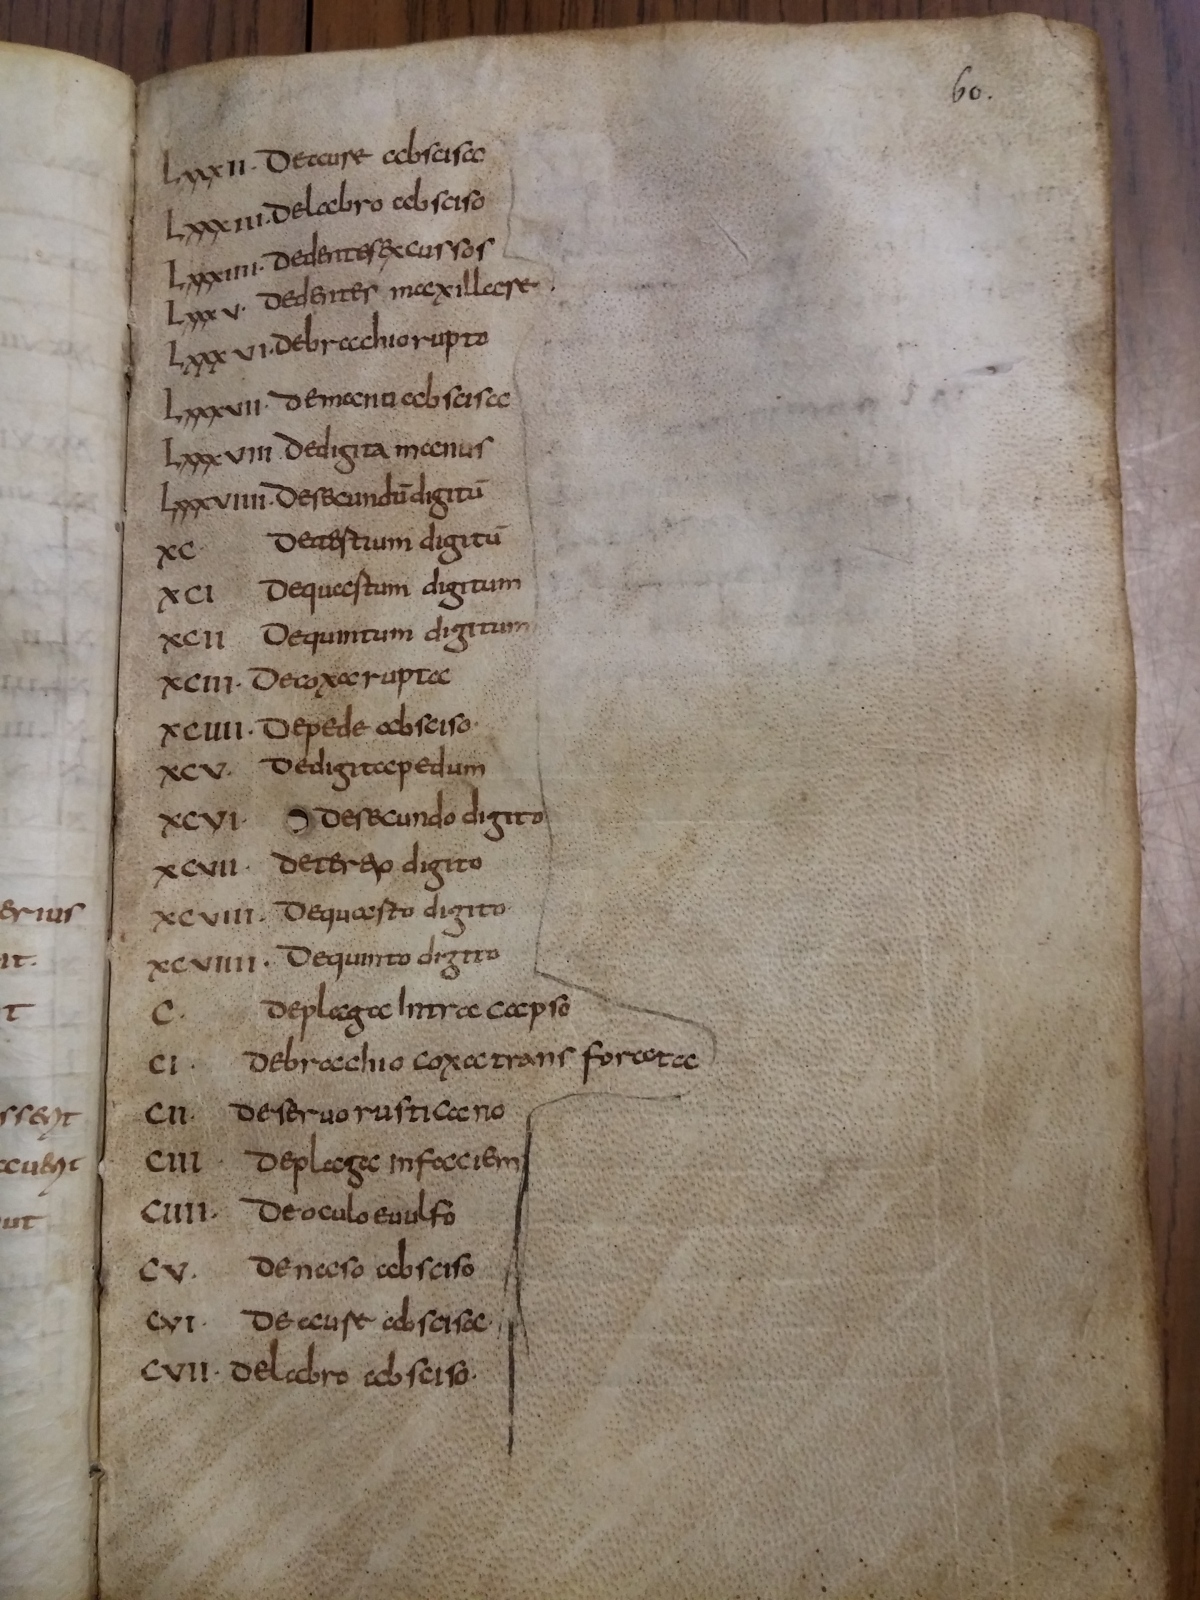 60.
LXXXII. De aure abscisa
LXXXIII. De labro absciso
LXXXIIII. De dentes excussos
LXXXV. De dentes maxillare.
LXXXVI. De brachio rupto
LXXXVII. De manu abscisa
LXXXVIII. De digita manus
LXXXVIIII. De secundū digitū
XC De tertium digitū
XCI De quartum digitum
XCII De quintum digitum
XCIII. De coxa rupta
XCIIII. De pede absciso.
XCV. De digita pedum
XCVI. De secundo digito
XCVII. De tertio digito
XCVIII. De quarto digito
XCVIIII. De quinto digito
C. De plaga Intra capso
CI. De brachio coxa trans forata
CII. De servo rusticano
CIII De plaga in faciem
CIIII. De oculo evulso
CV. De naso absciso
CVI. De aure abscisa.
CVII. De labro absciso.
erius
it.
t
ssent
ut